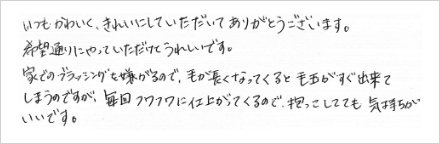 いつもかわいく、きれいにしていただいてありがとうございます。
希望通りにやっていただけてうれしいです。
家でのブラッシングを嫌がるので、毛が長くなってくると毛玉がすぐ出来て
しまうのですが、毎回フワフワに仕上がってくるので、抱っこしてても気持ちが
いいです。